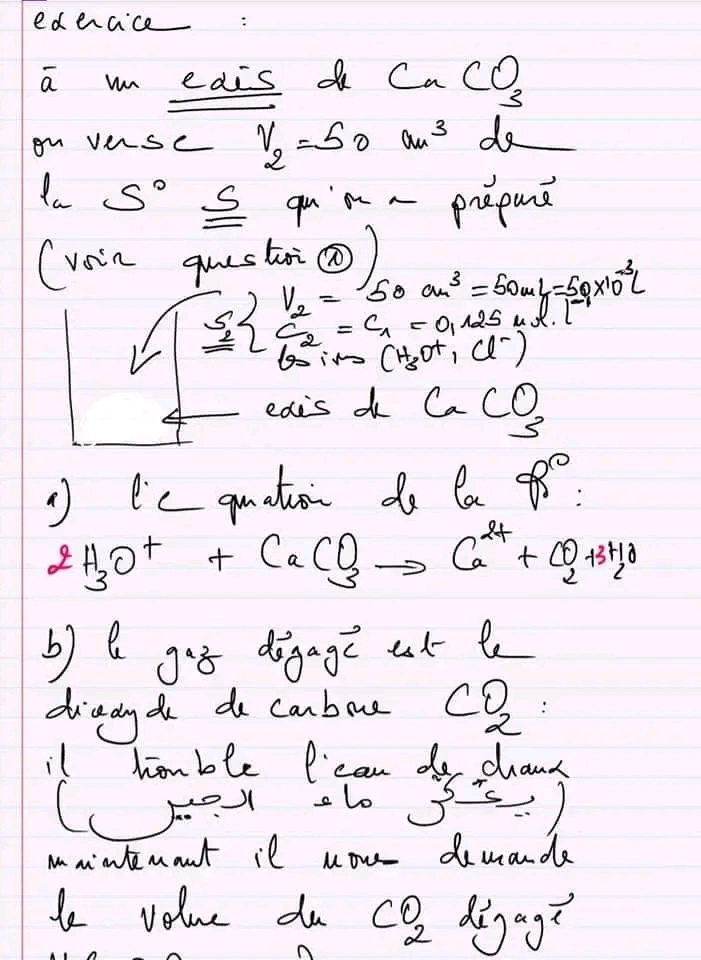 exercice :
à un excès de CaCO3
on verse V2 = 50 cm³ de
la S° S qu'on a préparé
(voir question ①)
V2 = 50 cm³ = 50mL = 50×10⁻³ L
S2 { C2 = C1 = 0,125 mol.l⁻¹
les ions (H3O⁺, Cl⁻)
excès de CaCO3
a) l'equation de la R° :
2 H3O⁺ + CaCO3 → Ca²⁺ + CO2 + 3H2O
b) le gaz dégagé est le
dioxyde de carbone CO2 :
il trouble l'eau de chaux
(يعكّر ماء الجير)
maintenant il nous demande
le volume du CO2 dégagé